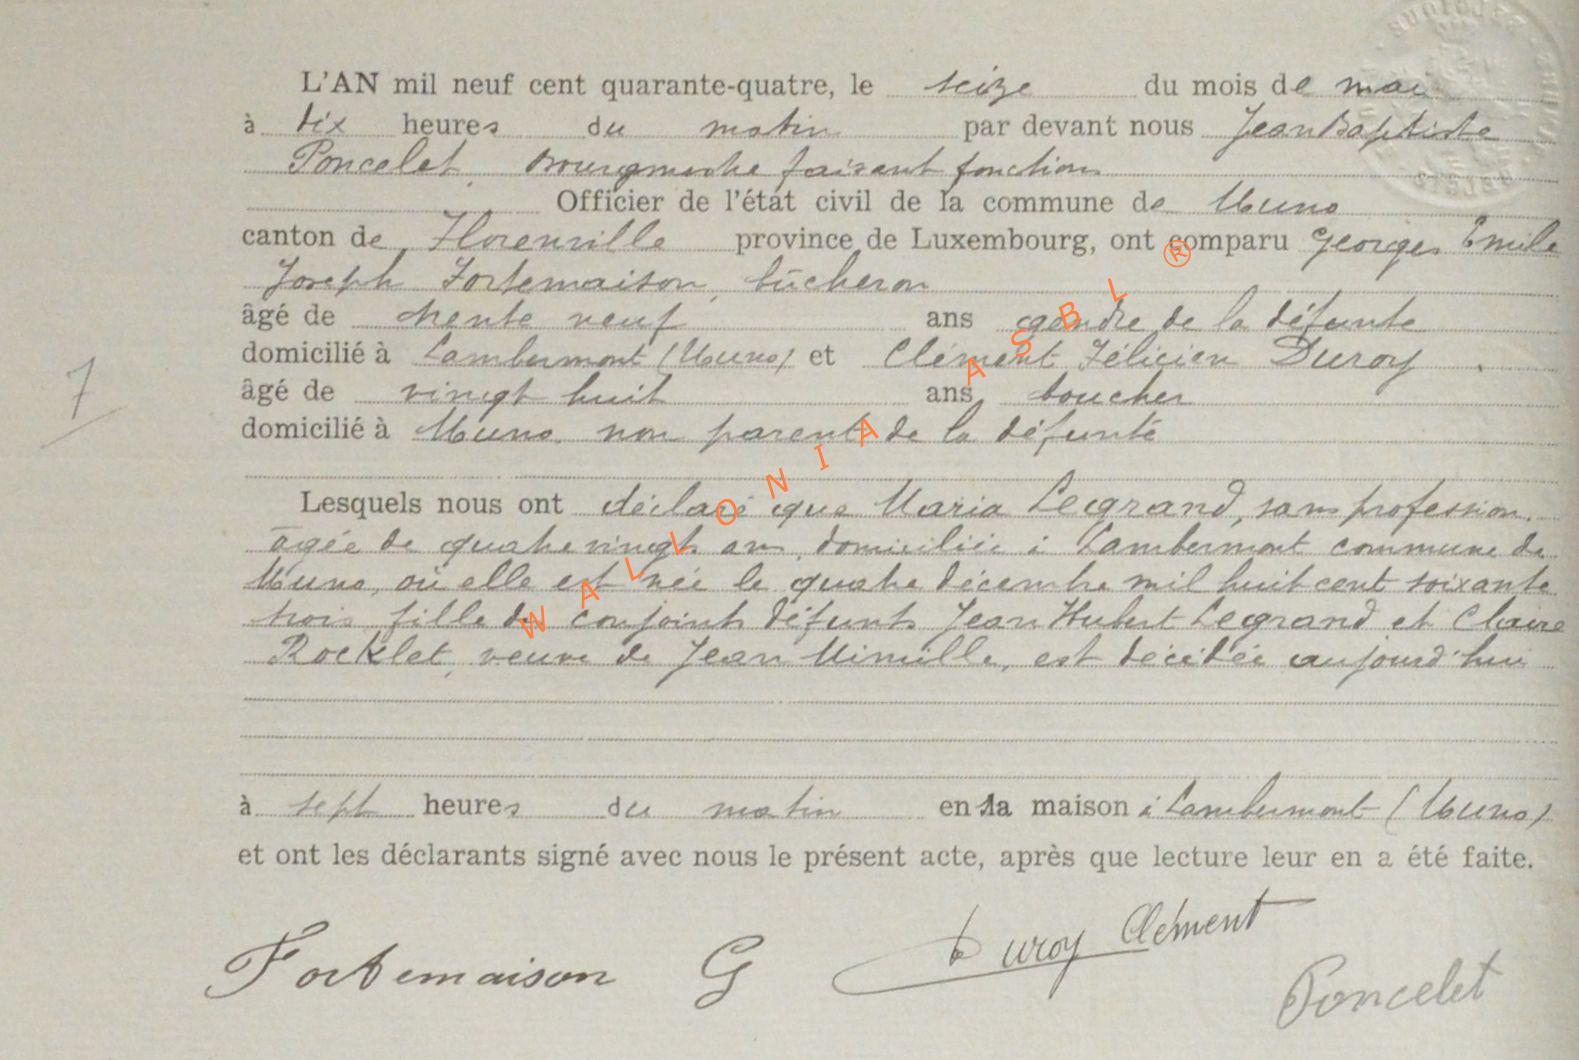 L'AN mil neuf cent quarante-quatre, le seize du mois de mai
à dix heures du matin par devant nous Jean Baptiste
Poncelet, Bourgmestre faisant fonction
Officier de l'état civil de la commune de Muno
canton de Florenville province de Luxembourg, ont comparu Georges Emile
Joseph Fortemaison, bûcheron
âgé de trente neuf ans gendre de la défunte
domicilié à Lambermont (Muno) et Clément Félicien Duroy
âgé de vingt huit ans boucher
7
domicilié à Muno, non parent de la défunte
Lesquels nous ont déclaré que Maria Legrand, sans profession,
âgée de quatre vingt ans, domiciliée à Lambermont commune de
Muno, où elle est née le quatre décembre mil huit cent soixante
trois, fille des conjoints défunts Jean Hubert Legrand et Claire
Rocklet, veuve de Jean Mimille, est décédée aujourd'hui
à sept heures du matin en sa maison à Lambermont (Muno)
et ont les déclarants signé avec nous le présent acte, après que lecture leur en a été faite.
Fortemaison G Duroy Clément
Poncelet
WALLONIA ASBL ®